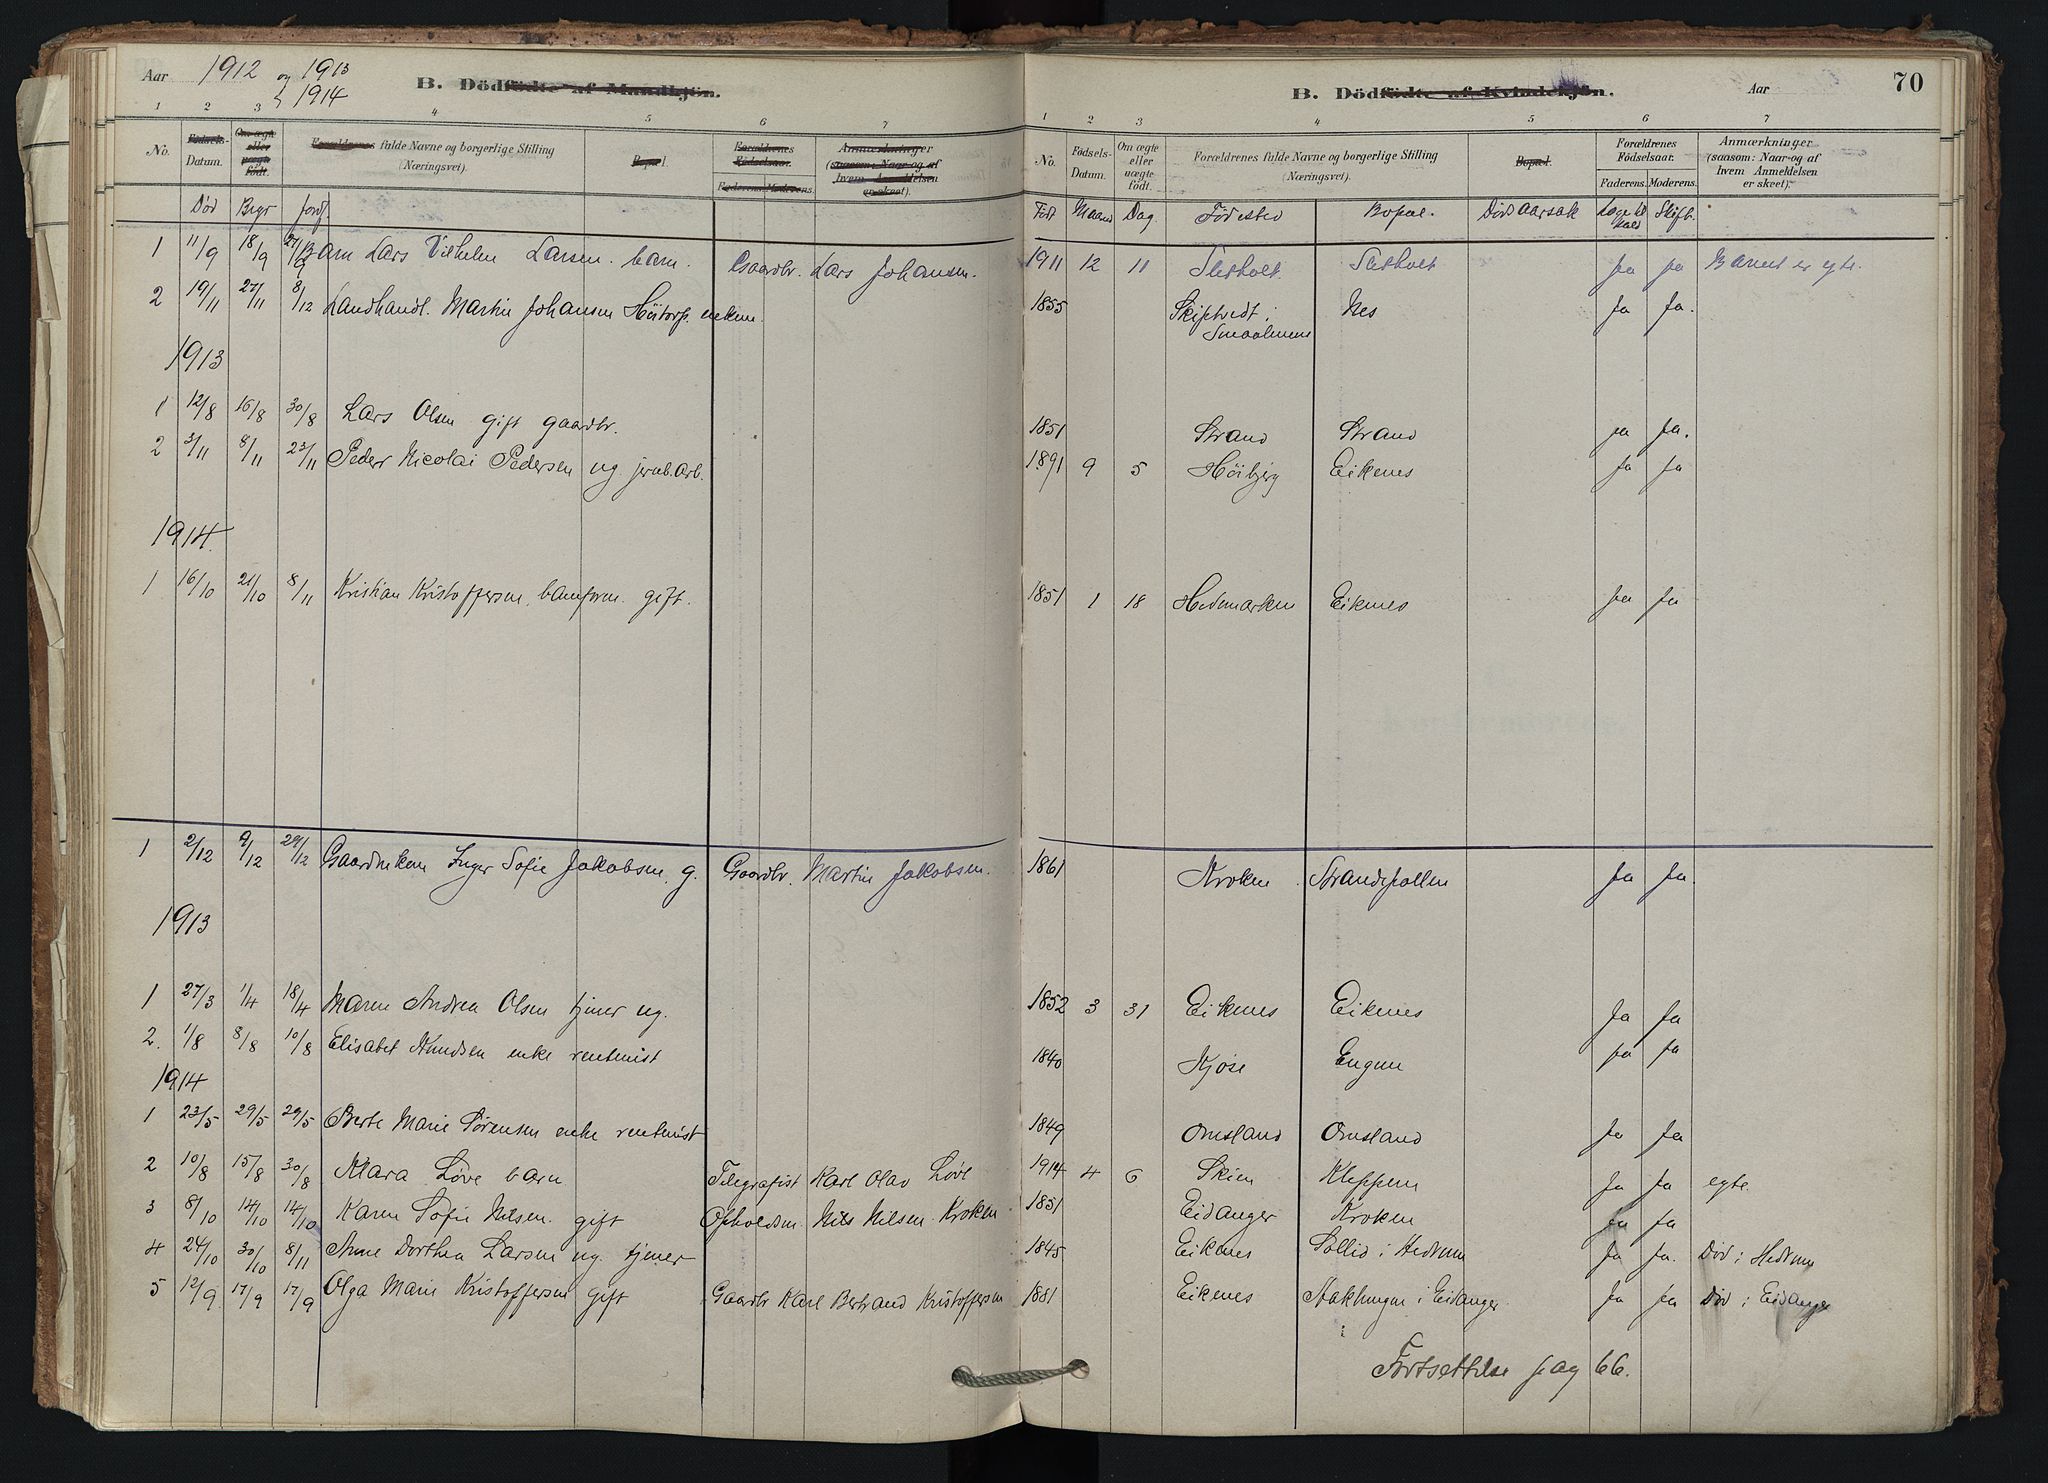 Aar 1912 og 1913
1914
B. Dödfödte af Mandkjön.
1 2 3 4 5 6 7
No. Födsels-Datum. Om ægte eller uægte födt. Forældrenes fulde Navne og borgerlige Stilling (Næringsvei). Bopæl. Forældrenes Födselsaar. Faderens. Moderens. Anmærkninger (saasom: Naar og af hvem Anmeldelsen er skeet).
Död Begr Jordf
1 11/9 18/9 27/9 Barn Lars Vilhelm Larsen. barn. Gaardbr. Lars Johansen.
2 19/11 27/11 8/12 Landhandl. Martin Johansen Höitorp. enkem.
1913
1 12/8 16/8 30/8 Lars Olsen gift gaardbr.
2 3/11 8/11 23/11 Peder Nicolai Pedersen ug. jernb.arb.
1914.
1 16/10 21/10 8/11 Kristian Kristoffersen, banform. gift.
1 2/12 9/12 29/12 Inger Sofie Jakobsen, g. Gaardbr. Martin Jakobsen.
1913
1 27/3 1/4 18/4 Maren Andrea Olsen tjener ug.
2. 1/8 8/8 10/8 Elisabet Knudsen enke rentenist
1914
1 23/5 29/5 29/5 Berte Marie Sörensen enke rentenist
2 10/8 15/8 30/8 Klara Löve barn Telegrafist Karl Olav Löve
3 8/10 14/10 14/10 Karen Sofie Nilsen. gift Opholdsm. Nils Nilsen. Kroken
4 24/10 30/10 8/11 Anne Dorthea Larsen ug. tjener
5 12/9 17/9 17/9 Olga Marie Kristoffersen gift Gaardbr Karl Bertrand Kristoffersen
B. Dödfödte af Kvindekjön. Aar 70
1 2 3 4 5 6 7
No. Födsels-Datum. Om ægte eller uægte födt. Forældrenes fulde Navne og borgerlige Stilling (Næringsvei). Bopæl. Forældrenes Födselsaar. Faderens. Moderens. Anmærkninger (saasom: Naar og af hvem Anmeldelsen er skeet).
Födt Maaned Dag. Födested Bopæl. Dödsaarsak Skift.
1911 12 11 Sletholt Sletholt ja ja Barnet er egte.
1855 Skiptvedt i Nes ja ja.
Smaalenene
1851 Strand Strand ja ja.
1891 9 5 Höibjerg Eikenes ja ja
1851 1 18 Hedemarken Eikenes ja ja
1861 Kroken Strandepollen ja ja.
1852 3 31 Eikenes Eikenes ja ja
1840 Kjose Engene ja ja
1849 Omsland Omsland ja ja
1914 4 6 Skien Kleppen ja ja egte.
1851 Eidanger Kroken ja ja
1845 Eikenes Sollid i Hedrum ja ja. Död i Hedrum
1881 Eikenes i Eidanger ja ja Död i Eidanger
Fortsettelse pag 66.